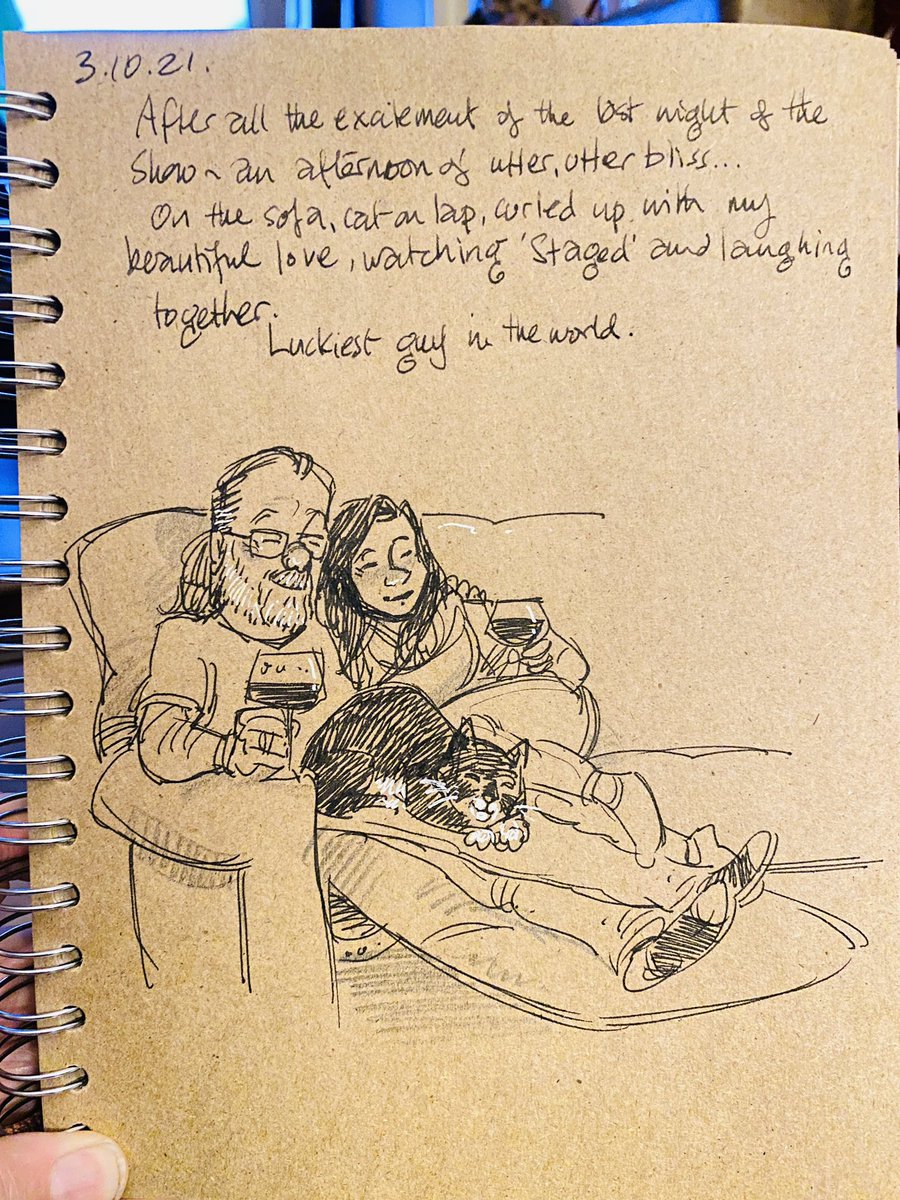 3.10.21.
After all the excitement of the last night of the
Show ~ an afternoon of utter, utter bliss...
On the sofa, cat on lap, curled up with my
beautiful love, watching 'Staged' and laughing
together.
Luckiest guy in the world.